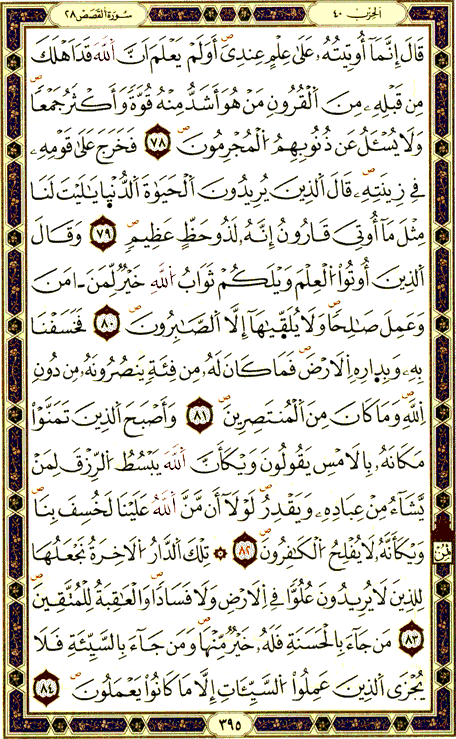 سورة القصص ٢٨ الحزب ٤٠
قَالَ إِنَّمَآ أُوتِيتُهُۥ عَلَىٰ عِلْمٍ عِندِىٓ أَوَلَمْ يَعْلَمْ أَنَّ اَ۬للَّهَ قَدَ اَهْلَكَ
مِن قَبْلِهِۦ مِنَ اَ۬لْقُرُونِ مَنْ هُوَ أَشَدُّ مِنْهُ قُوَّةً وَأَكْثَرُ جَمْعاً
وَلَا يُسْـَٔلُ عَن ذُنُوبِهِمُ اُ۬لْمُجْرِمُونَ ٧٨ فَخَرَجَ عَلَىٰ قَوْمِهِۦ
فِى زِينَتِهِۦ قَالَ اَ۬لذِينَ يُرِيدُونَ اَ۬لْحَيَوٰةَ اَ۬لدُّنْيَا يَٰلَيْتَ لَنَا
مِثْلَ مَآ أُوتِىَ قَٰرُونُ إِنَّهُۥ لَذُو حَظٍّ عَظِيمٍ ٧٩ وَقَالَ
اَ۬لذِينَ أُوتُوا۟ اُ۬لْعِلْمَ وَيْلَكُمْ ثَوَابُ اُ۬للَّهِ خَيْرٌ لِّمَنَ ـ اٰمَنَ
وَعَمِلَ صَٰلِحاً وَلَا يُلَقَّىٰهَآ إِلَّا اَ۬لصَّٰبِرُونَ ٨٠ فَخَسَفْنَا
بِهِۦ وَبِدِارِهِ اِ۬لَارْضَ فَمَا كَانَ لَهُۥ مِن فِئَةٍ يَنصُرُونَهُۥ مِن دُونِ
اِ۬للَّهِ وَمَا كَانَ مِنَ اَ۬لْمُنتَصِرِينَ ٨١ وَأَصْبَحَ اَ۬لذِينَ تَمَنَّوْا۟
مَكَانَهُۥ بِالَامْسِ يَقُولُونَ وَيْكَأَنَّ اَ۬للَّهَ يَبْسُطُ اُ۬لرِّزْقَ لِمَنْ
يَّشَآءُ مِنْ عِبَادِهِۦ وَيَقْدِرُ لَوْلَآ أَن مَّنَّ اَ۬للَّهُ عَلَيْنَا لَخُسِفَ بِنَا
وَيْكَأَنَّهُۥ لَا يُفْلِحُ اُ۬لْكَٰفِرُونَ ٨٢ ۞ تِلْكَ اَ۬لدَّارُ اُ۬لَاخِرَةُ نَجْعَلُهَا
لِلذِينَ لَا يُرِيدُونَ عُلُوّاً فِى اِ۬لَارْضِ وَلَا فَسَاداً وَالْعَٰقِبَةُ لِلْمُتَّقِينَ
٨٣ مَن جَآءَ بِالْحَسَنَةِ فَلَهُۥ خَيْرٌ مِّنْهَا وَمَن جَآءَ بِالسَّيِّئَةِ فَلَا
يُجْزَى اَ۬لذِينَ عَمِلُوا۟ اُ۬لسَّيِّـَٔاتِ إِلَّا مَا كَانُوا۟ يَعْمَلُونَ ٨٤
٣٩٥